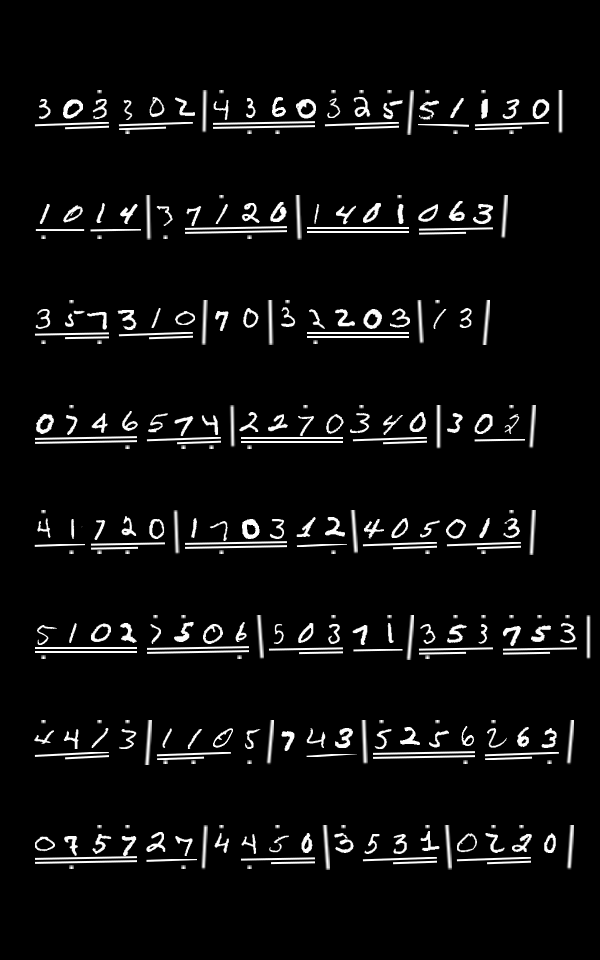 303302|4360325|51130
1014|37120|1401063
357310|70|32203|13
0746574|2270340|302
41720|170312|405013
51027506|50371|353753
4413|1105|743|5256263
075727|4450|3531|0220